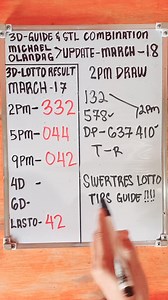 3D-GUIDE & STL COMBINATION
MICHAEL OLANDAG > UPDATE-MARCH-18
3D-LOTTO RESULT
MARCH-17
2PM- 332
5PM- 044
9PM- 042
4D -
6D-
LAST2- 42
2PM DRAW
132
578 2pm
DP-637 410
T-R
SWERTRES LOTTO
TIPS GUIDE !!!!